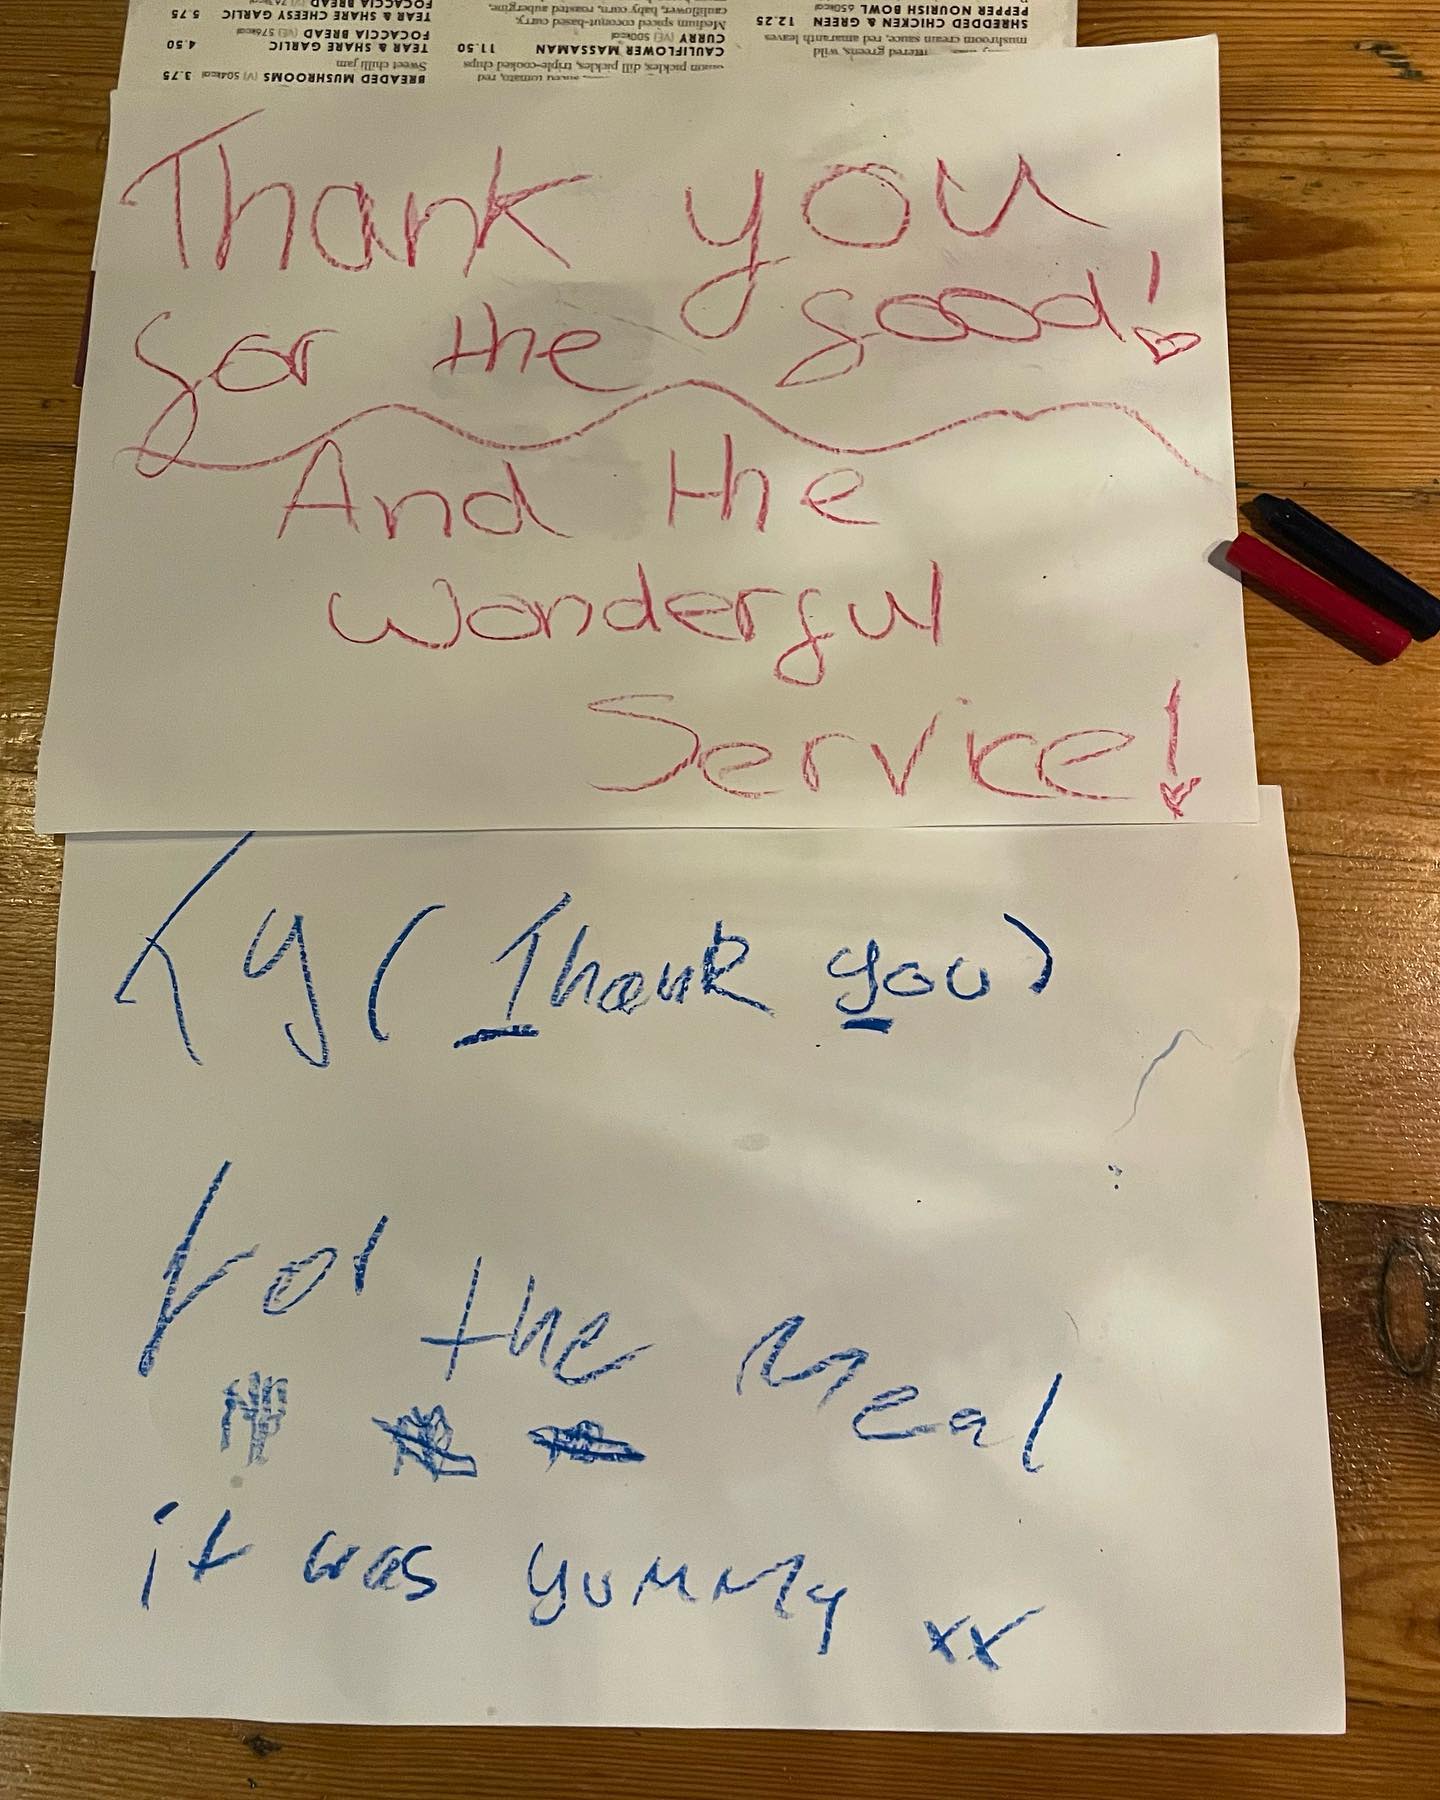 greens, wild
mushroom cream sauce, red amaranth leaves
SHREDDED CHICKEN & GREEN 12.25
PEPPER NOURISH BOWL 650kcal
tomato, red
pickles, dill pickles, triple-cooked chips
CAULIFLOWER MASSAMAN 11.50
CURRY (VE) 500kcal
Medium spiced coconut-based curry,
cauliflower, baby corn, roasted aubergine,
BREADED MUSHROOMS (V) 504kcal 3.75
Sweet chilli jam
TEAR & SHARE GARLIC 4.50
FOCACCIA BREAD (VE) 576kcal
TEAR & SHARE CHEESY GARLIC 5.75
FOCACCIA BREAD
Thank you
for the food!
And the
wonderful
Service!
Ty (Thank you)
For the meal
it was yummy xx